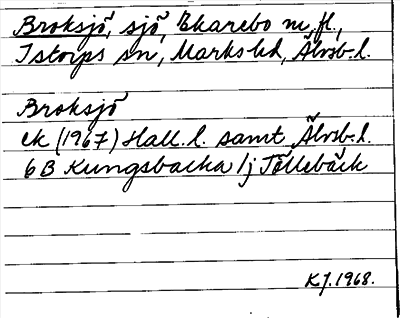 Broksjö, sjö, Ekarebo m.fl.,
Istorps sn, Marks hd, Älvsb.l.
Broksjö
ek (1967) Hall.l. samt Älvsb.l.
6B Kungsbacka 1j Töllebäck
KJ.1968.